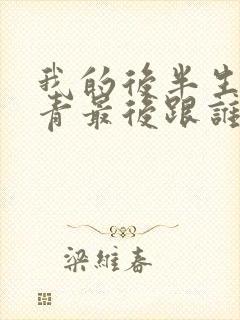 我的後半生
青最後跟誰
梁維春